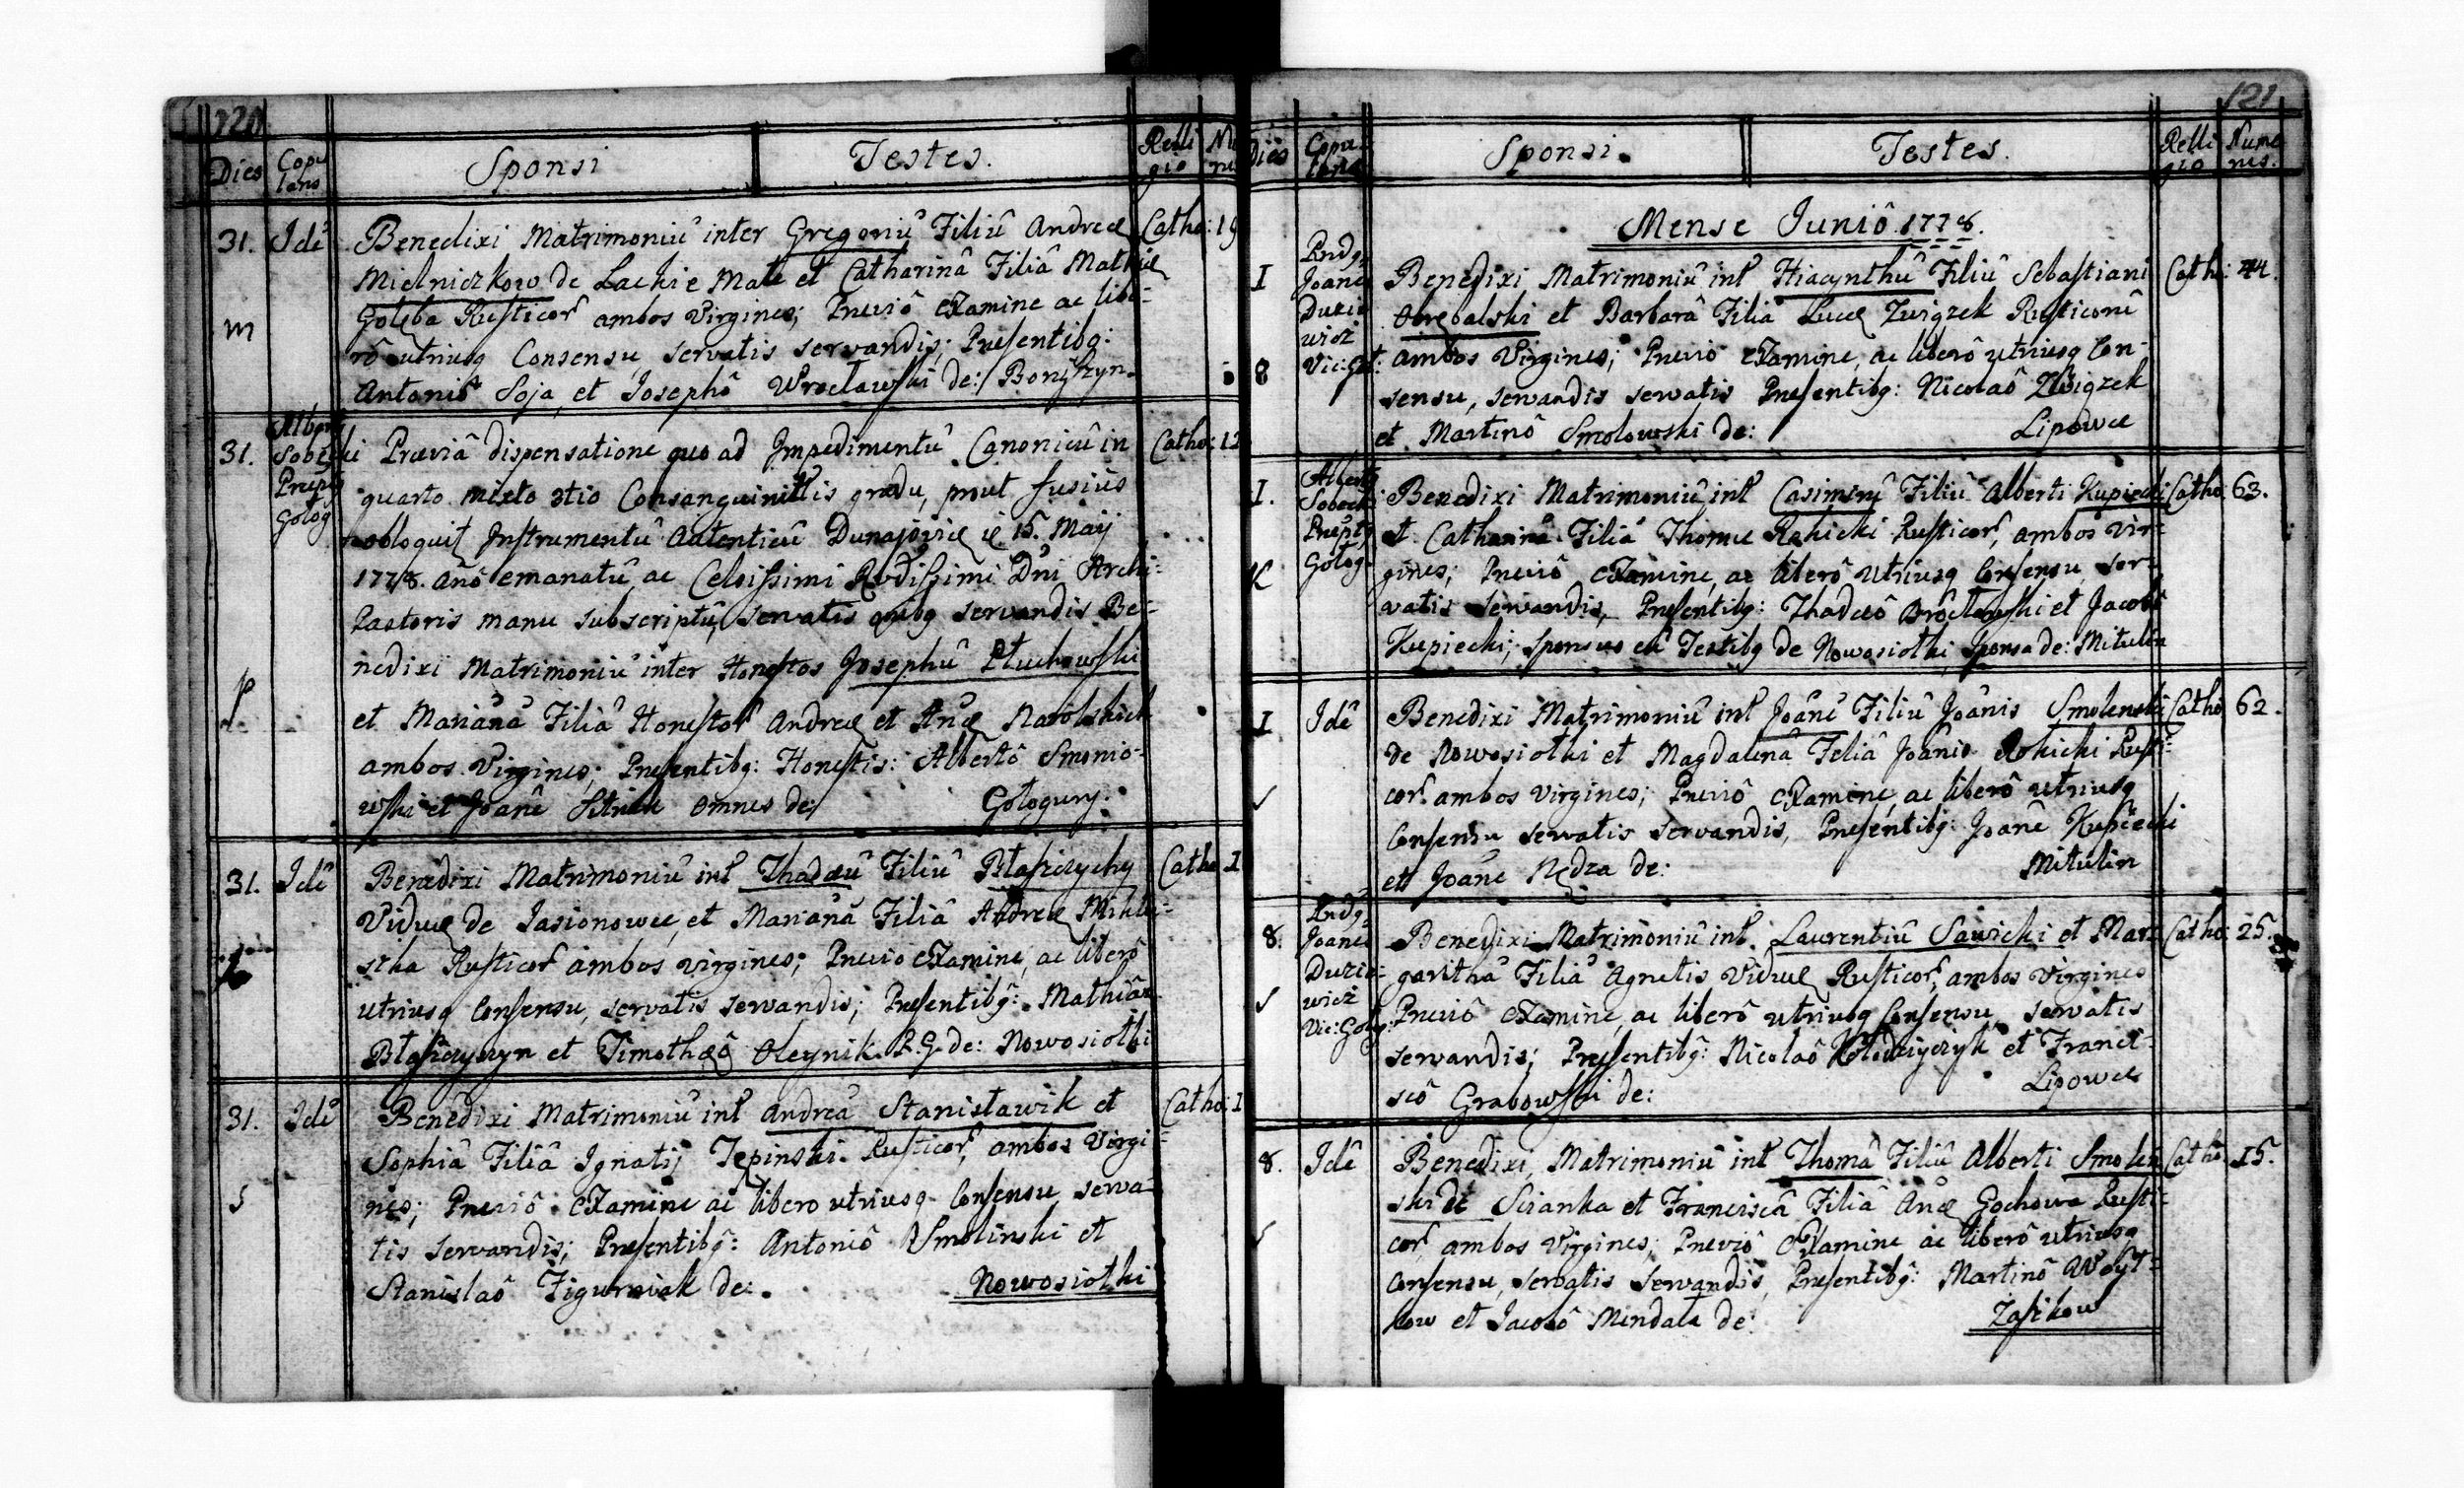 120
Dies Copu lans Sponsi Testes. Relli gio
31. Idê Benedixi Matrimoniû inter Gregoriû Filiû Andreæ Catho: 19
Mielniczkow de Lackie Małe et Catharinâ Filiâ Mathiæ
Gołęba Rusticor ambos Virgines; Præviô Examine ac libe-
m
rô utriusq Consensu, servatis servandis; Præsentibq:
Antoniô Soja, et Josephô Wrocławski de:
31. Alberty Sobecki Præptq Gołog
Præviâ dispensatione quo ad Impedimentû Canonicû in Catho: 12
quarto mixto 3tio Consanguinittis gradu, prout fusiûs
Instrumentû Autenticû Dunajoviæ 15. Maij
1778. Anô emanatû, ac Celsissimi Rvdissimi Dni Archi-
Pastoris manu subscriptû, servatis servandis Be-
nedixi Matrimoniû inter Honestos Josephû Ptuchowski
p
et Mariânâ Filiâ Honestor Andreæ et Anæ
ambos Virgines; Præsentibq: Honestis: Albertô Smonio-
wski et Joanê omnes de Gołogury.
31. Idê Benedixi Matrimoniû int Thadæû Filiû Błaszczychy Catho I
Viduæ de Jasionowce, et Mariânâ Filiâ Andreæ
Rusticor ambos virgines; Previo Examine, ac liberô
utriusq Consensu, servatis servandis; Præsentibq:
Błaszczyszyn et Timotheô Oleynik R.G. de: Nowosiołki
31. Idê Benedixi Matrimoniû int Andreâ Stanisławik et Catho: I
Sophiâ Filiâ Ignatij Rusticor, ambos Virgi-
s
nes; Previô Examine ac libero utriusq Consensu, serva-
tis servandis; Præsentibq: Antoniô Smolinski et
Stanislaô Figurniak de: Nowosiołki
121
Dies Copu- lans Sponsi. Testes. Relli gio Nume rus.
Mense Juniô 1778.
I Rndq Joanês Duzie wicz Vic: Goł:
Benedixi Matrimoniû int Hiacynthû Filiû Sebastiani Catho: 44.
et Barbarâ Filiâ Lucæ Zwigzek Rusticorû
8 ambos Virgines; Previô Examine, ac liberô utriusq Con-
sensu, servandis servatis Præsentibq: Nicolaô Zwigzek
et Martinô Smolowski de: Lipowce
I. Alberty Sobecki Præptq Gołog:
Benedixi Matrimoniû int Casimirû Filiû Alberti Kupiecki Catho 63.
et Catharinâ Filiâ Thomæ Rokicki Rusticor, ambos Vir-
K
gines; Previô Examine, ac liberô utriusq Consensu ser-
vatis servandis, Præsentibq: Thadeô et Jacobô
Kupiecki; Sponsus cû Testibq de Nowosiołki Sponsa de: Mitulin
I Idê Benedixi Matrimoniû int Joânê Filiû Joânis Smolenski Catho 62.
de Nowosiołki et Magdalenâ Filiâ Joânis Rokicki Rusti-
cor. ambos virgines; Previô Examine, ac liberô utriusq
Consensu servatis servandis, Præsentibq: Joanê Kupiecki
et Joanê Nędza de: Mitulin
8. Rndq Joanês Duzie- wicz Vic: Gołog:
Benedixi Matrimoniû int. Laurentiû Sawicki et Mar- Catho: 25.
garithâ Filiâ Agnetis Viduæ Rusticor, ambos Virgines
Previô Examine, ac liberô utriusq Consensu servatis
servandis; Præsentibq: Nicolaô et Franci-
scô Grabowski de: Lipowce
8. Idê Benedixi Matrimoniû int Thomâ Filiû Alberti Smolen- Catho 15.
ski de Scianka et Franciscâ Filiâ Anæ Gochowa Rusti-
cor, ambos Virgines; Previô Examine ac liberô utriusq
Consensu, servatis servandis, Præsentibq: Martinô Woyt-
kow et Jacobô Mendala de: Zaszkow